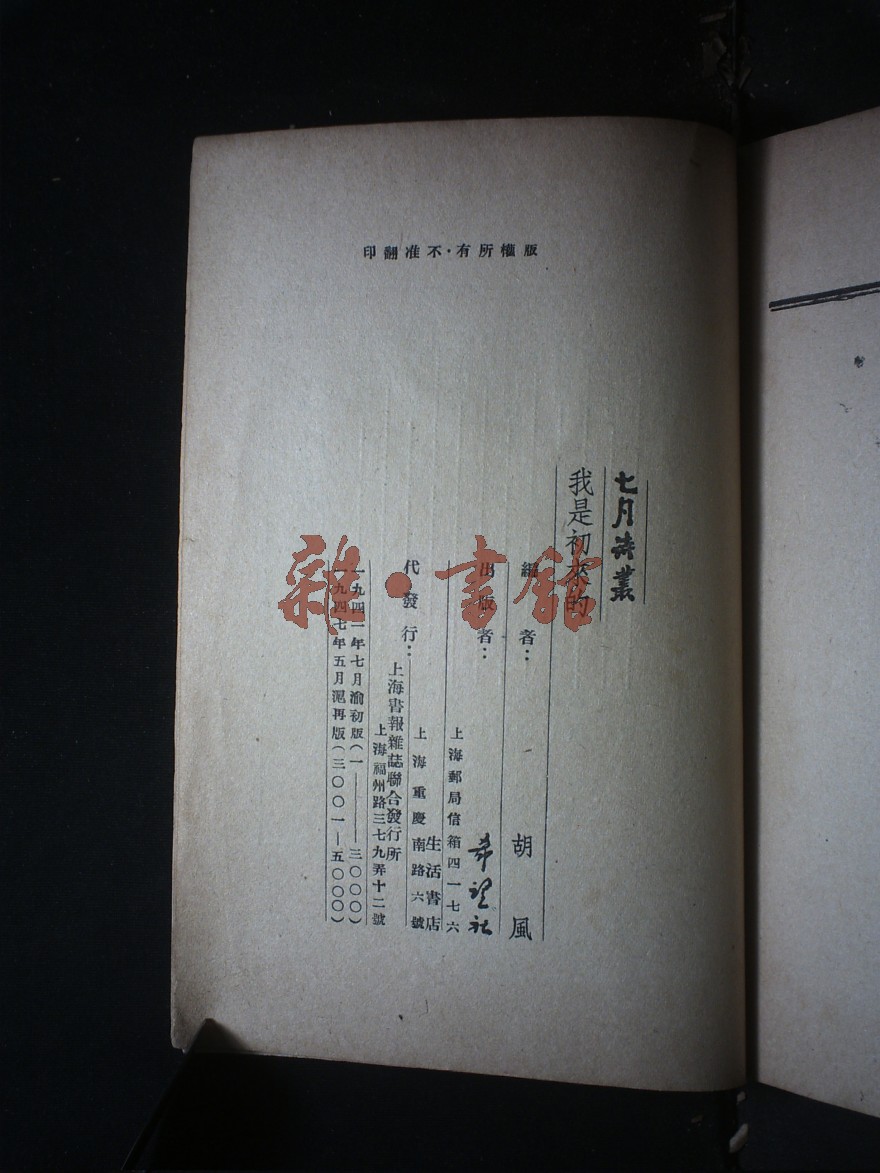 版權所有·不准翻印
七月詩叢
我是初來的
編者：胡風
出版者：希望社
上海郵局信箱四一七六
代發行：生活書店
上海重慶南路六號
上海書報雜誌聯合發行所
上海福州路三七九弄十二號
一九四一年七月渝初版（一——三〇〇〇）
一九四七年五月滬再版（三〇〇一—五〇〇〇）
雜·書館